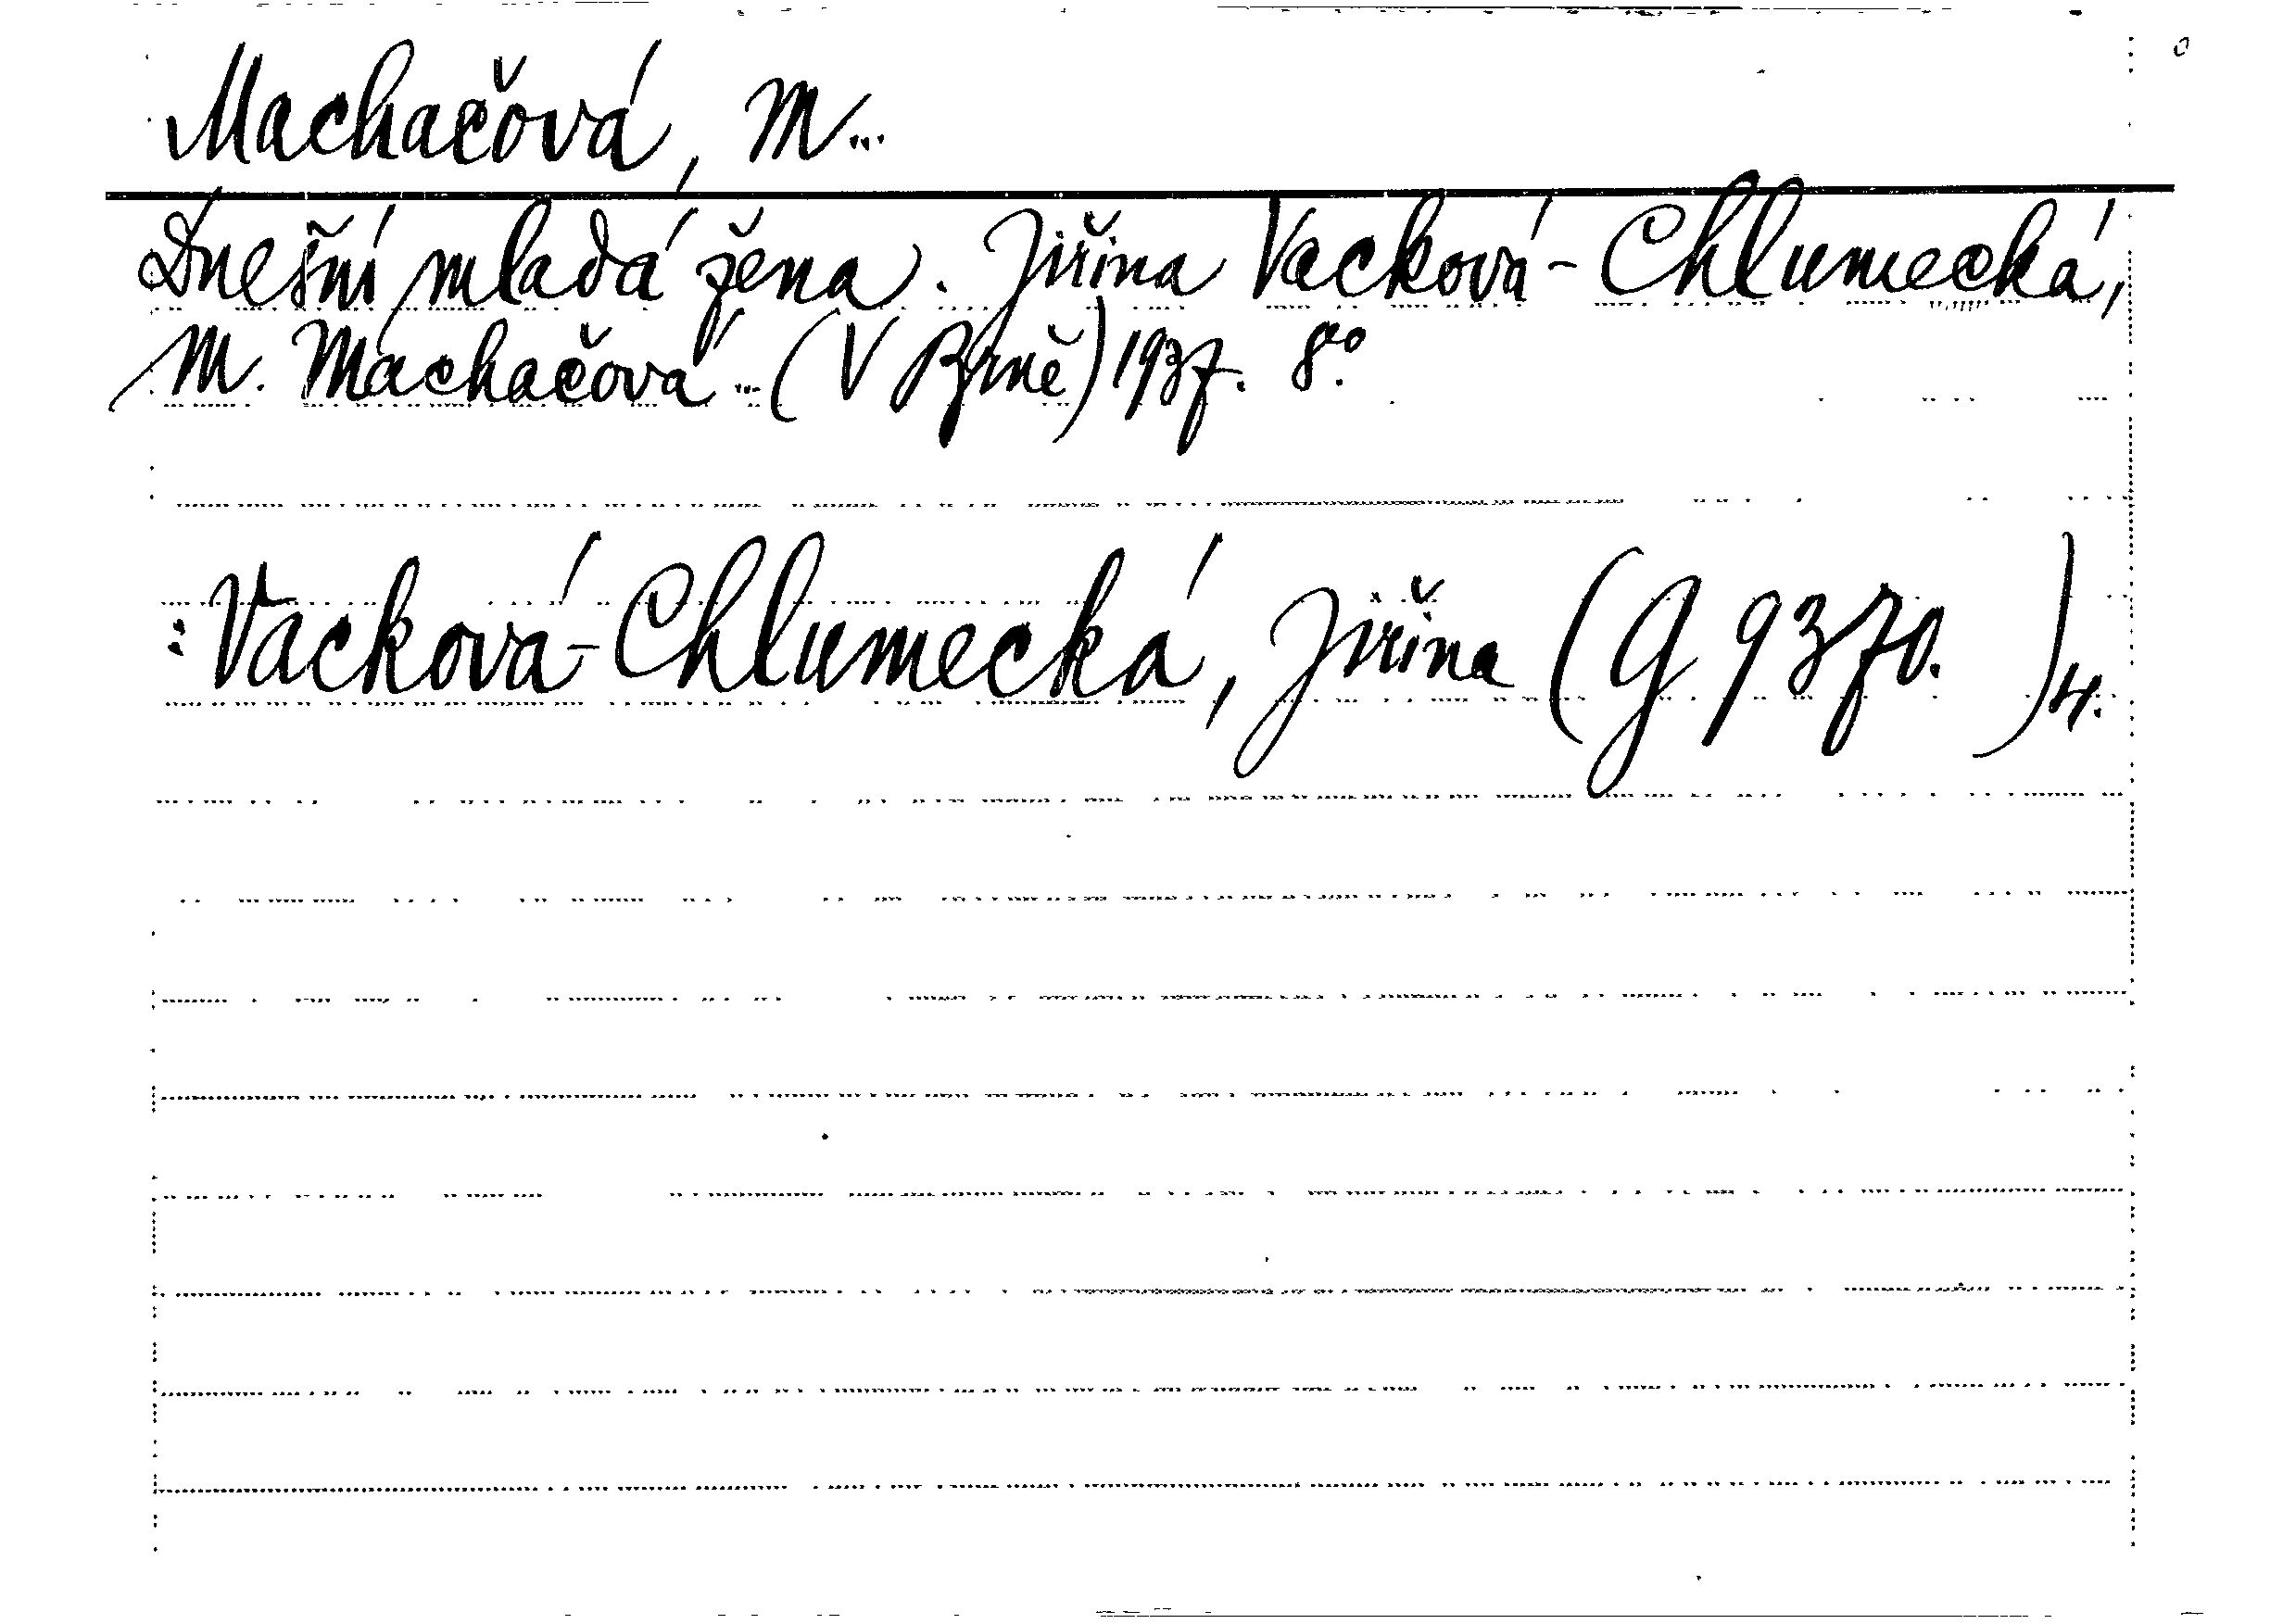 Machačová, M...
Dnešní mladá žena. Jiřina Vacková-Chlumecká,
M. Machačová... (V Brně) 1937. 8°.
: Vacková-Chlumecká, Jiřina (G 9370. )4.